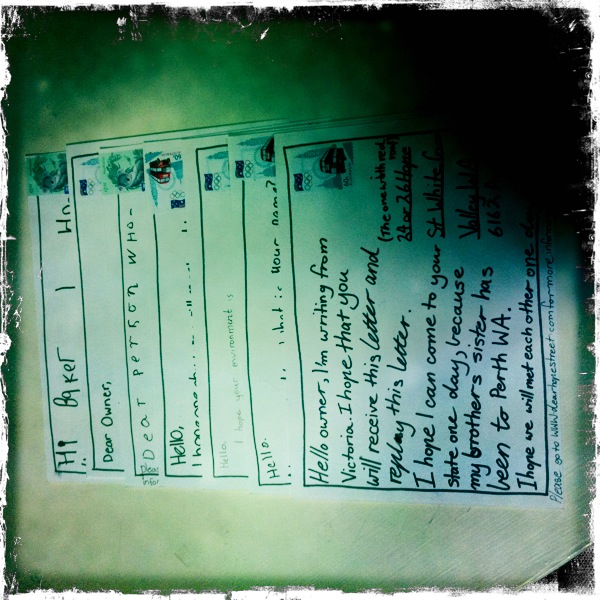 Hi Baker
Dear Owner,
Dear person who-
Hello,
Hello.
I hope your environment is
Hello.
that is your name?
Hello owner, I'm writing from
Victoria. I hope that you
will receive this letter and
replay this letter.
I hope I can come to your
state one day, because
my brothers sister has
been to Perth WA.
I hope we will met each other one
(The one with red
roof)
24 or 26 Hope
St White
Valley WA
6162
Please go to WWW.dearhopestreet.com for more